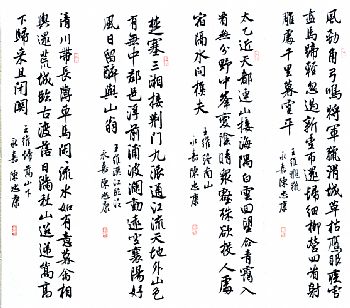 風勁角弓鳴將軍獵渭城草枯鷹眼疾雪
盡馬蹄輕忽過新豐市還歸細柳營回首射
雕處千里暮雲平
王維觀獵
永嘉陳忠康
太乙近天都連山接海隅白雲回望合青靄入
看無分野中峯變陰晴衆壑殊欲投人處
宿隔水問樵夫
王維終南山
永嘉陳忠康
楚塞三湘接荊門九派通江流天地外山色
有無中郡邑浮前浦波瀾動遠空襄陽好
風日留醉與山翁
王維漢江臨泛
永嘉陳忠康
清川帶長薄車馬閑流水如有意暮禽相
與還荒城臨古渡落日滿秋山迢遞嵩高
下歸來且閉關
王維歸嵩山下
永嘉陳忠康